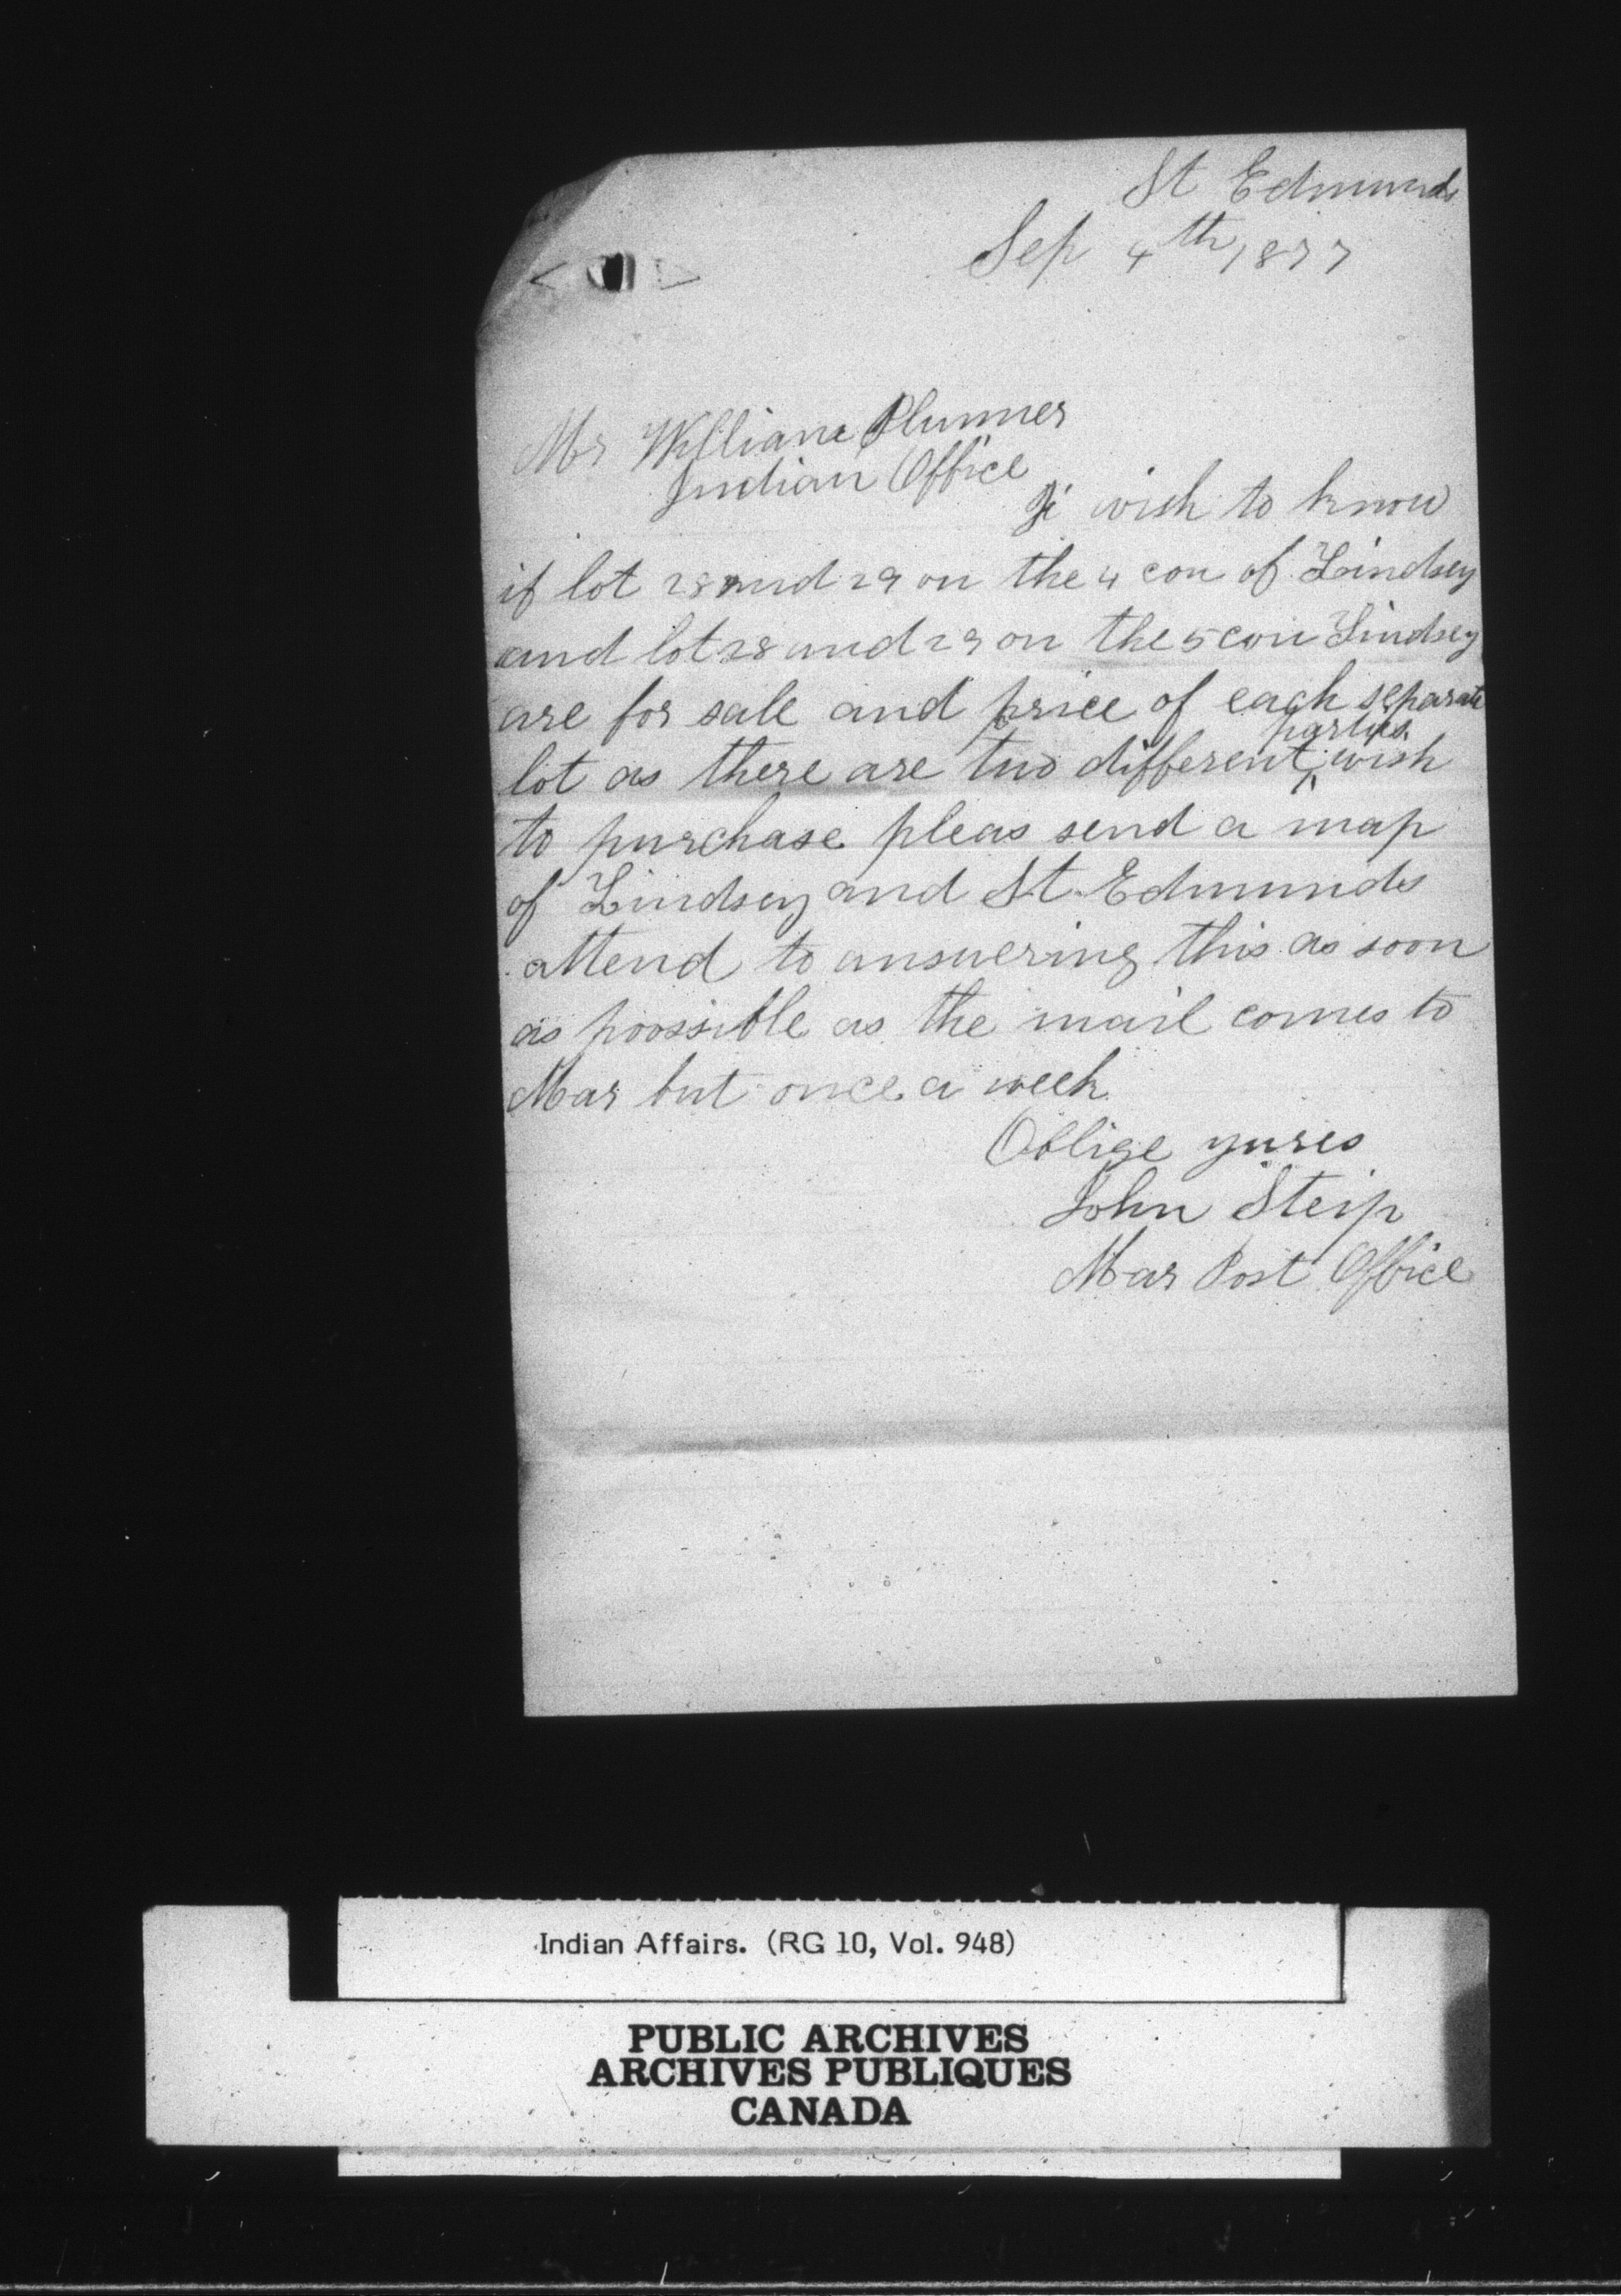 St Edmunds
Sep 4th, 1877
Mr William Plummer
Indian Office
I wish to know
if lot 28 and 29 on the 4 con of Lindsey
and lot 28 and 29 on the 5 con Lindsey
are for sale and price of each separate
parties
lot as there are two different wish
to purchase pleas send a map
of Lindsey and St Edmunds
attend to answering this as soon
as poossible as the mail comes to
Mar but once a week
Oblige yures
John Steip
Mar Post Office
Indian Affairs. (RG 10, Vol. 948)
PUBLIC ARCHIVES
ARCHIVES PUBLIQUES
CANADA